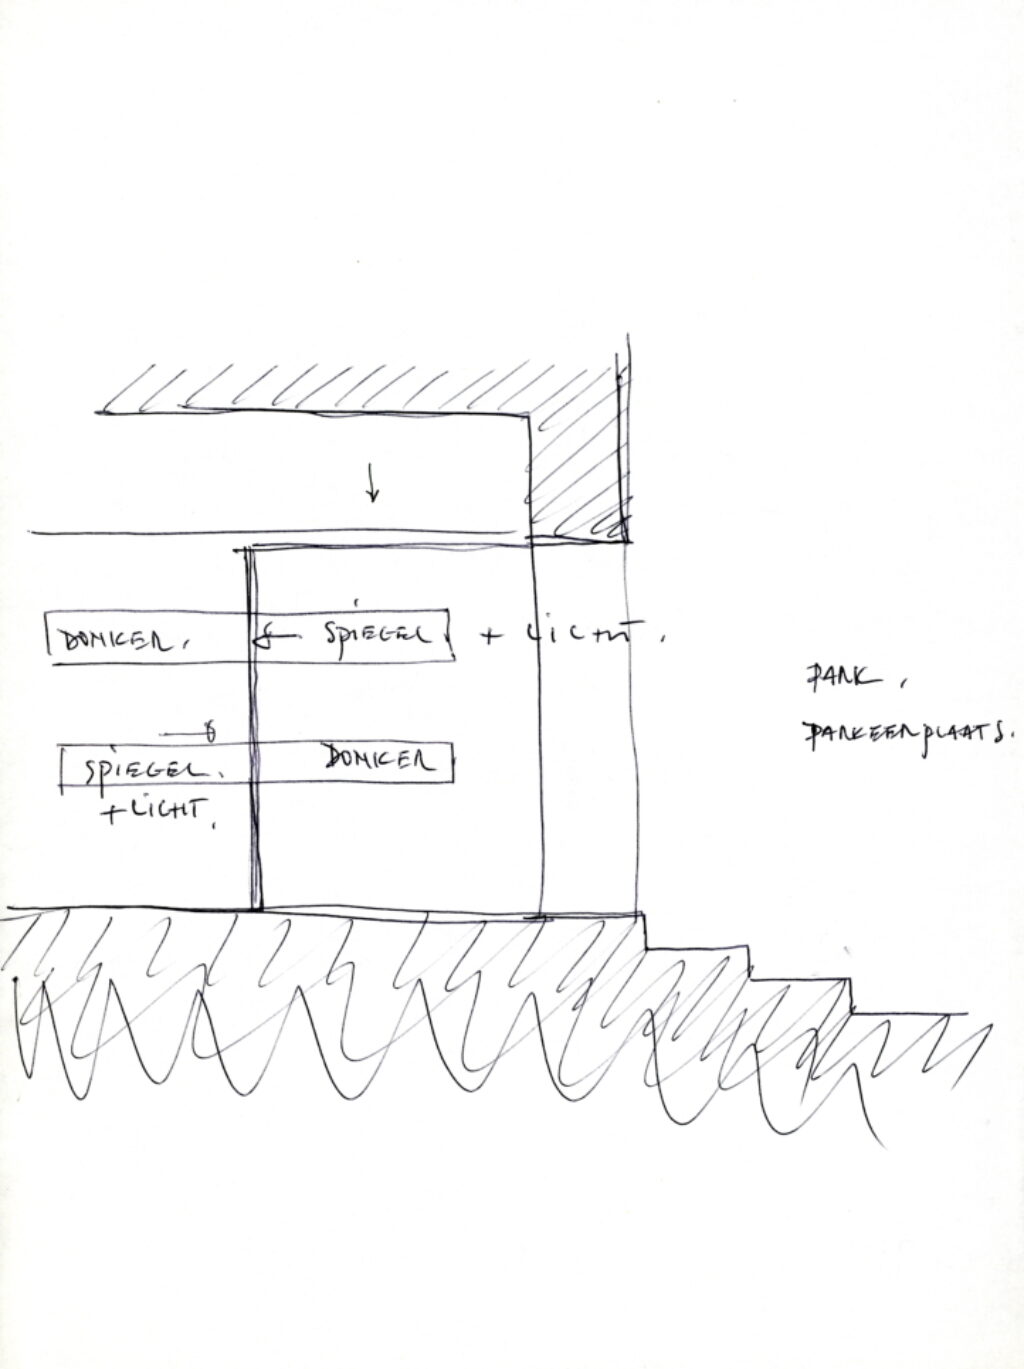 DONKER. ← SPIEGEL + LICHT.
PARK.
PARKEERPLAATS.
SPIEGEL. DONKER
+ LICHT.